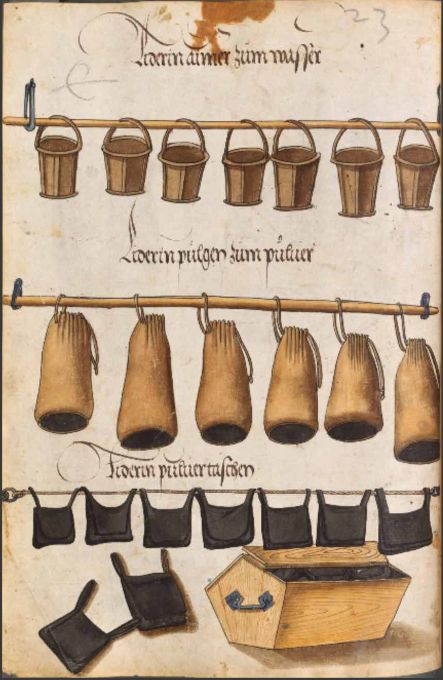 23
Liderin aimer zum wasser
Liderin pulgen zum puluer
Liderin puluertaschen